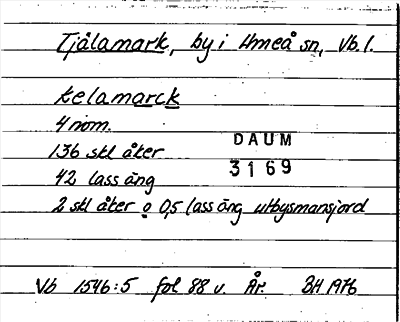 Tjålamark, by i Umeå sn, Vb. l.
telamarck
4 nom.
136 skl åker
DAUM
42 lass äng
3169
2 skl åker o 0,5 lass äng utbysmansjord
Vb 1546:5 fol 88 v. År. BH 1976